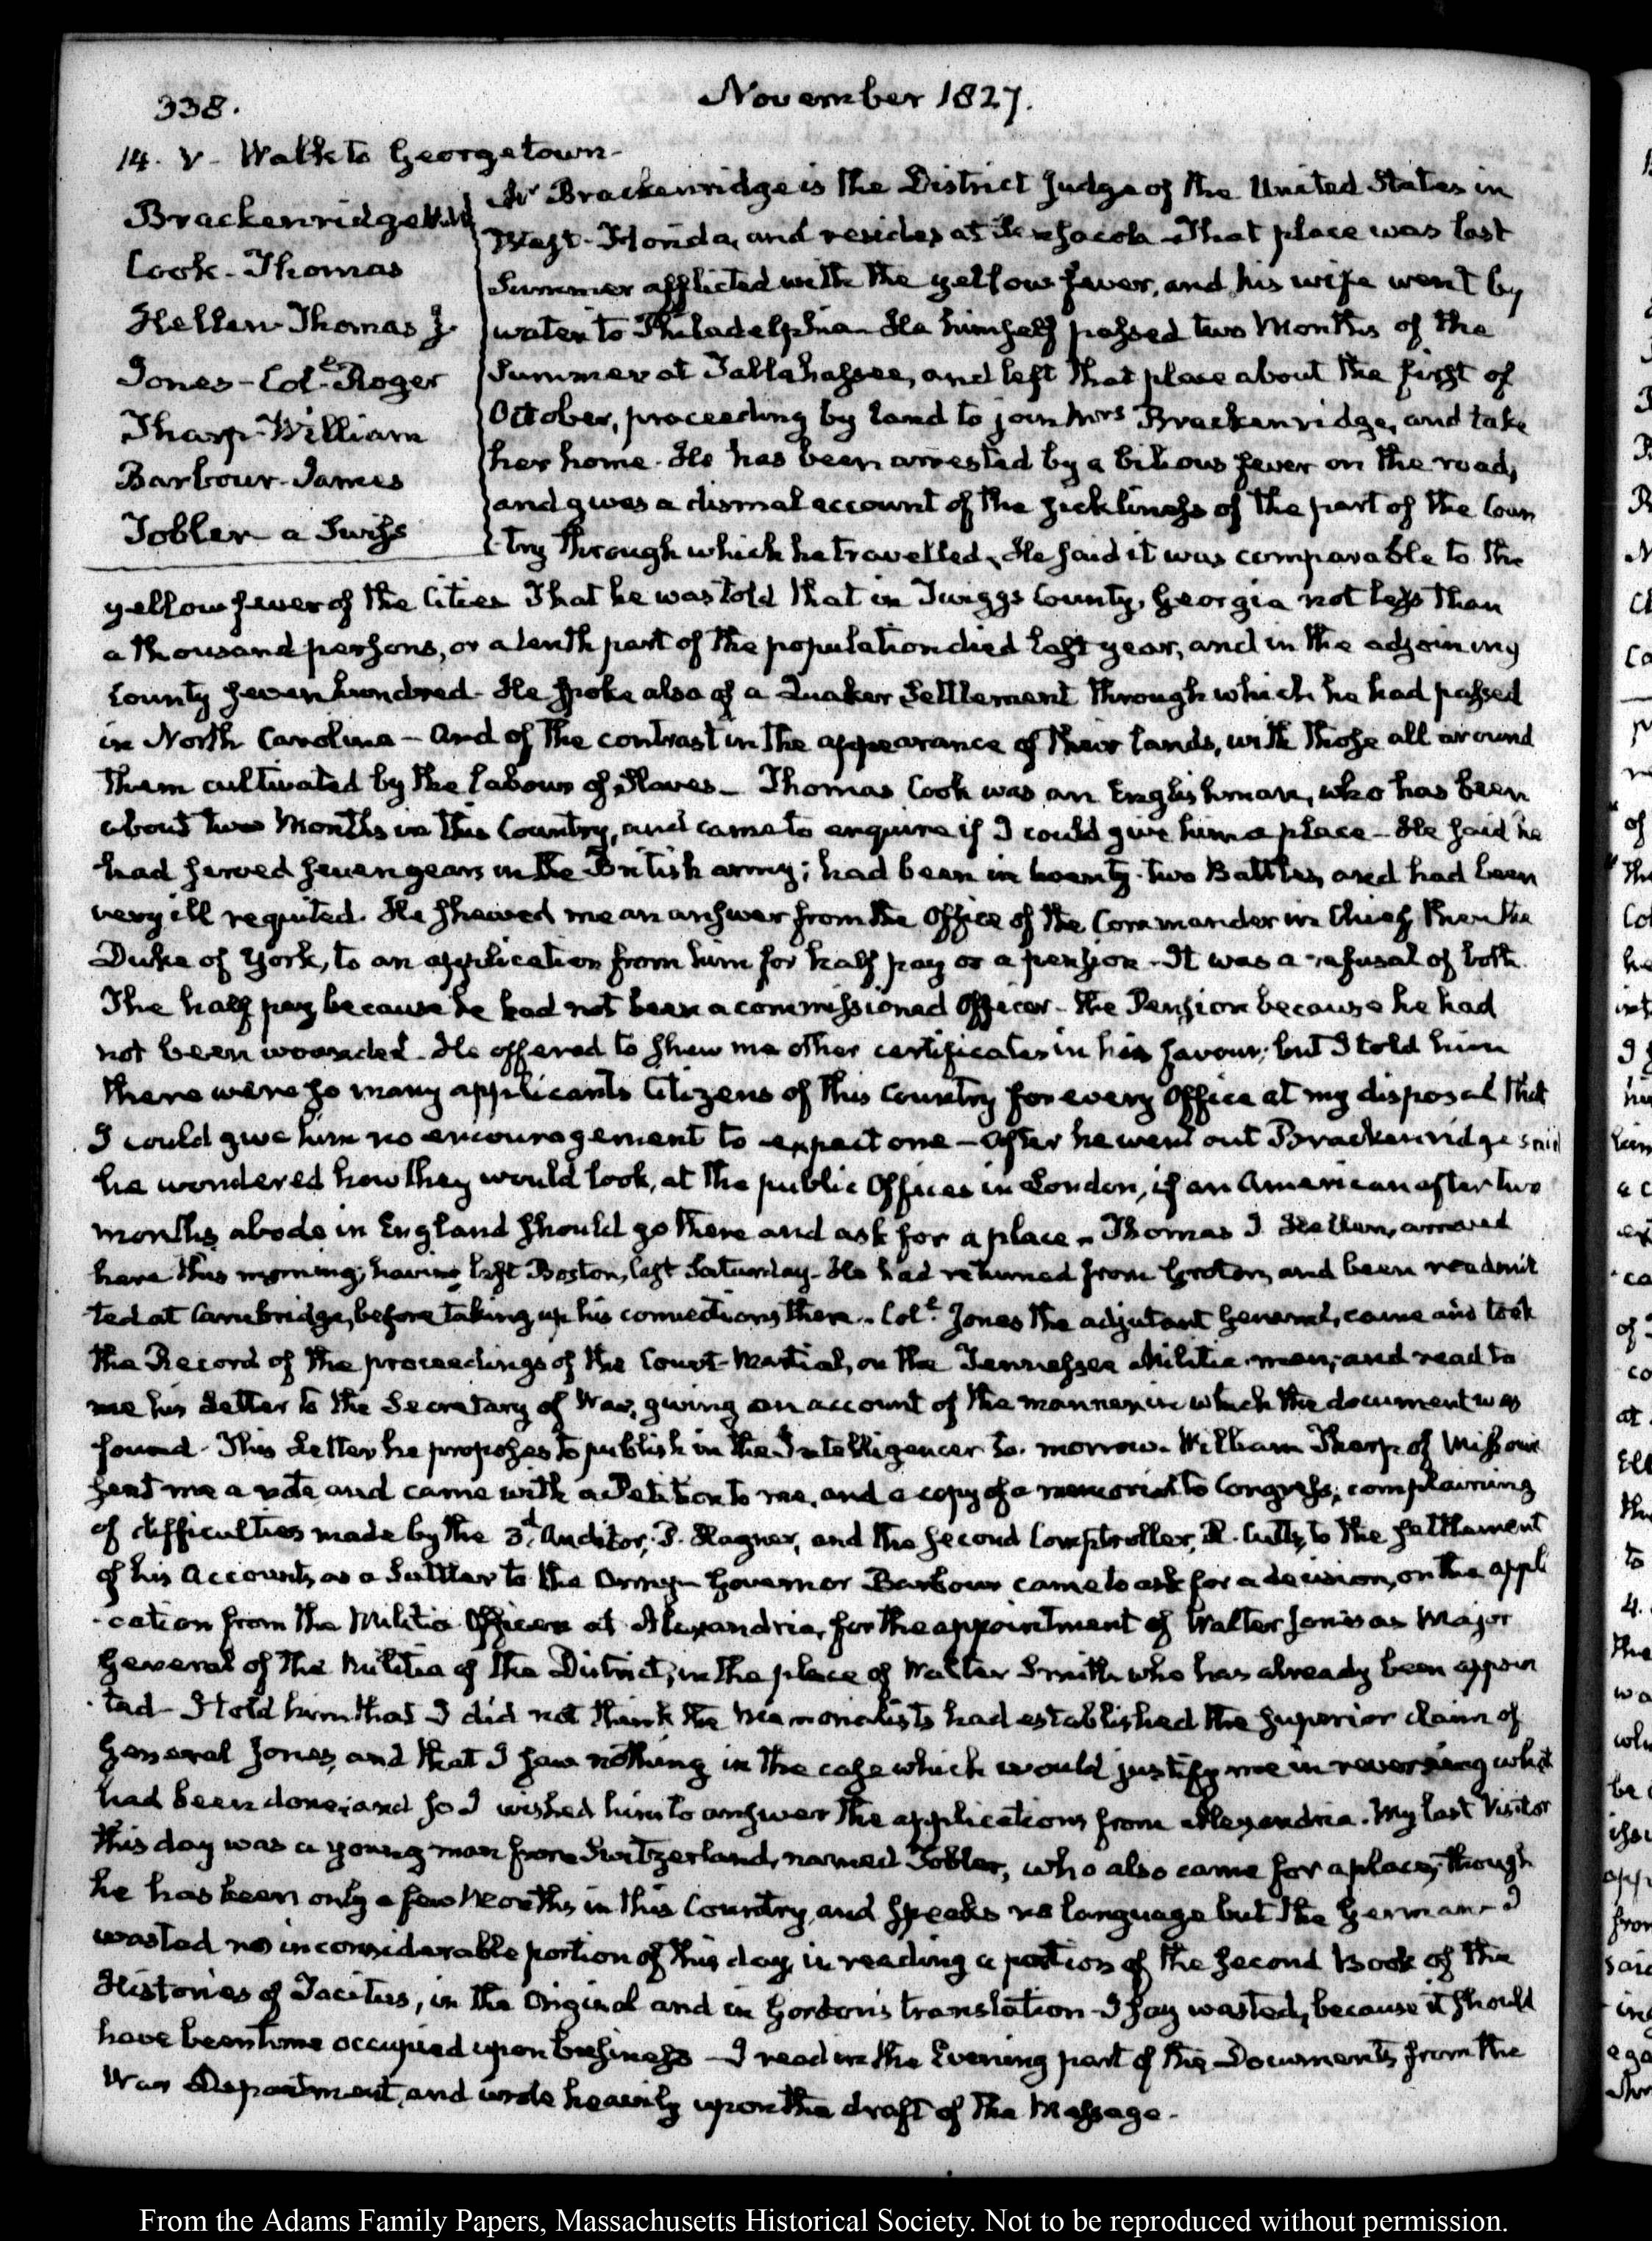 338.
November 1827.
14. V. Walk to Georgetown-
Brackenridge H.M
Cook- Thomas
Hellen- Thomas J.
Jones- Col.l Roger
Tharp- William
Barbour- James
Tobler a Swiss
Mr Brackenridge is the District Judge of the United States in
West-Florida, and resides at Pensacola- That place was last
Summer afflicted with the yellow fever, and his wife went by
water to Philadelphia- He himself passed two Months of the
Summer at Tallahassee, and left that place about the first of
October, proceeding by land to join Mrs Brackenridge, and take
her home- He has been arrested by a bilious fever on the road,
and gives a dismal account of the sickliness of the part of the Coun
-try through which he travelled. He said it was comparable to the
yellow fever of the Cities That he was told that in Twiggs County, Georgia not less than
a thousand persons, or a tenth part of the population died last year, and in the adjoining
County seven hundred- He spoke also of a Quaker Settlement through which he had passed
in North Carolina- and of the contrast in the appearance of their lands, with those all around
them cultivated by the labour of Slaves- Thomas Cook was an Englishman, who has been
about two Months in this Country, and came to enquire if I could give him a place- He said he
had served seven years in the British army; had been in twenty-two Battles, and had been
very ill requited. He shewed me an answer from the Office of the Commander in Chief then the
Duke of York, to an application from him for half pay or a pension- It was a refusal of both
The half pay because he had not been a commissioned Officer- the Pension because he had
not been wounded- He offered to shew me other certificates in his favour; but I told him
there were so many applicants Citizens of this Country for every Office at my disposal that
I could give him no encouragement to expect one- After he went out Brackenridge said
he wondered how they would look, at the public Offices in London, if an American after two
months abode in England should go there and ask for a place- Thomas J Hellen, arrived
here this morning; having left Boston, last Saturday- He had returned from Groton, and been readmit
-ted at Cambridge, before taking up his connections there.- Col.l Jones the adjutant General, came and took
the Record of the proceedings of the Court-Martial, on the Tennessee Militia-men; and read to
me his Letter to the Secretary of War, giving an account of the manner in which the document was
found- This Letter he proposes to publish in the Intelligencer to-morrow- William Tharp of Missouri
sent me a note, and came with a Petition to me, and a copy of a memorial to Congress; complaining
of difficulties made by the 3d Auditor, P. Hagner, and the second Comptroller, R. Cutts, to the settlement
of his Accounts, as a Suttler to the Army- Governor Barbour came to ask for a decision, on the appli
-cation from the Militia Officers at Alexandria, for the appointment of Walter Jones as Major
General of the Militia of the District, in the place of Walter Smith who has already been appoin
-ted- I told him that I did not think the Memorialists had established the superior claim of
General Jones, and that I saw nothing in the case which would justify me in reversing what
had been done; and so I wished him to answer the applications from Alexandria. My last Visitor
this day was a young man from Switzerland, named Tobler, who also came for a place, though
he has been only a few Months in this Country, and speaks no language but the German- I
wasted no inconsiderable portion of this day, in reading a portion of the second Book of the
Histories of Tacitus, in the Original and in Gordon's translation- I say wasted, because it should
have been time occupied upon business- I read in the Evening part of the Documents from the
War Department, and wrote heavily upon the draft of the Message-
From the Adams Family Papers, Massachusetts Historical Society. Not to be reproduced without permission.